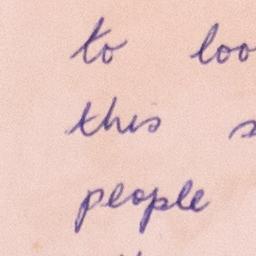 to loo
this s
people